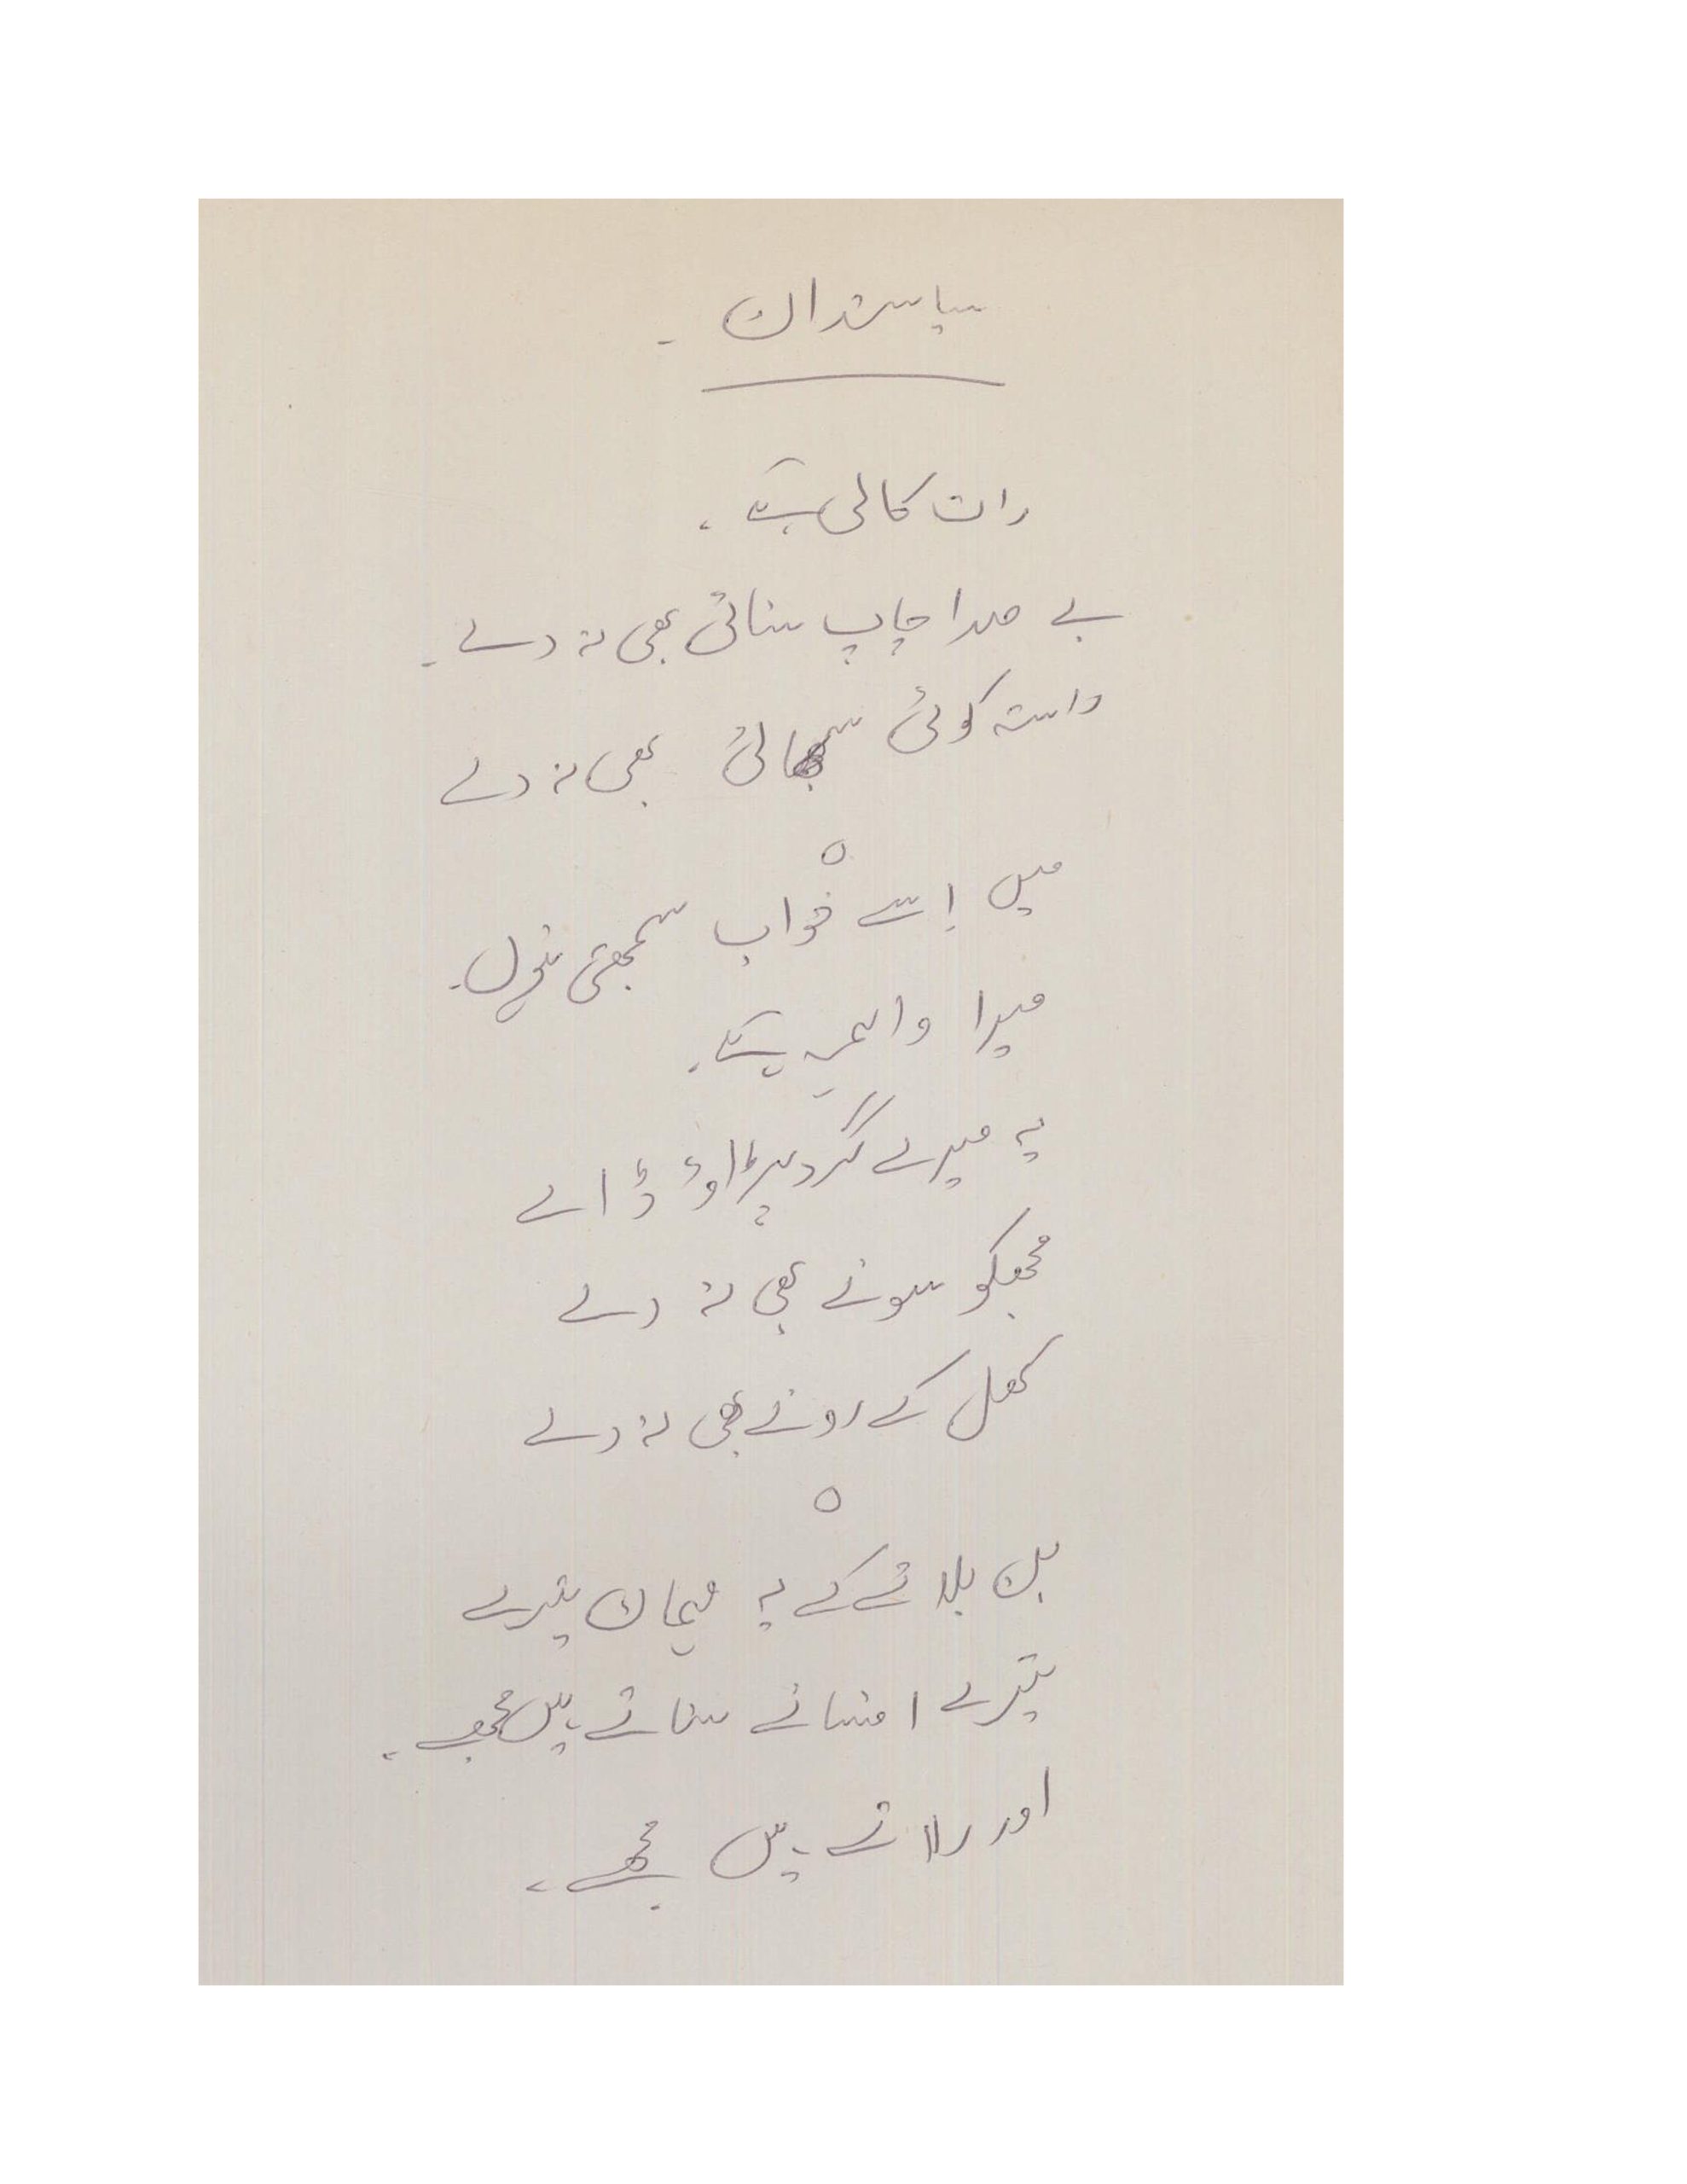 سیاستداں ۔
رات کالی ہے ،
بے صدا چاپ سنائی بھی نہ دے ۔
راستہ کوئی سجھائی بھی نہ دے
ہ
میں اِسے خواب سمجھتی ہوں ۔
میرا واہمہ ہے ۔
یہ میرے گرد پڑاؤ ڈالے
مجھکو سونے بھی نہ دے
کھل کے رونے بھی نہ دے
ہ
بن بلائے کے یہ مہماں تیرے
تیرے افسانے سناتے ہیں مجھے ۔
اور رلاتے ہیں مجھے ۔